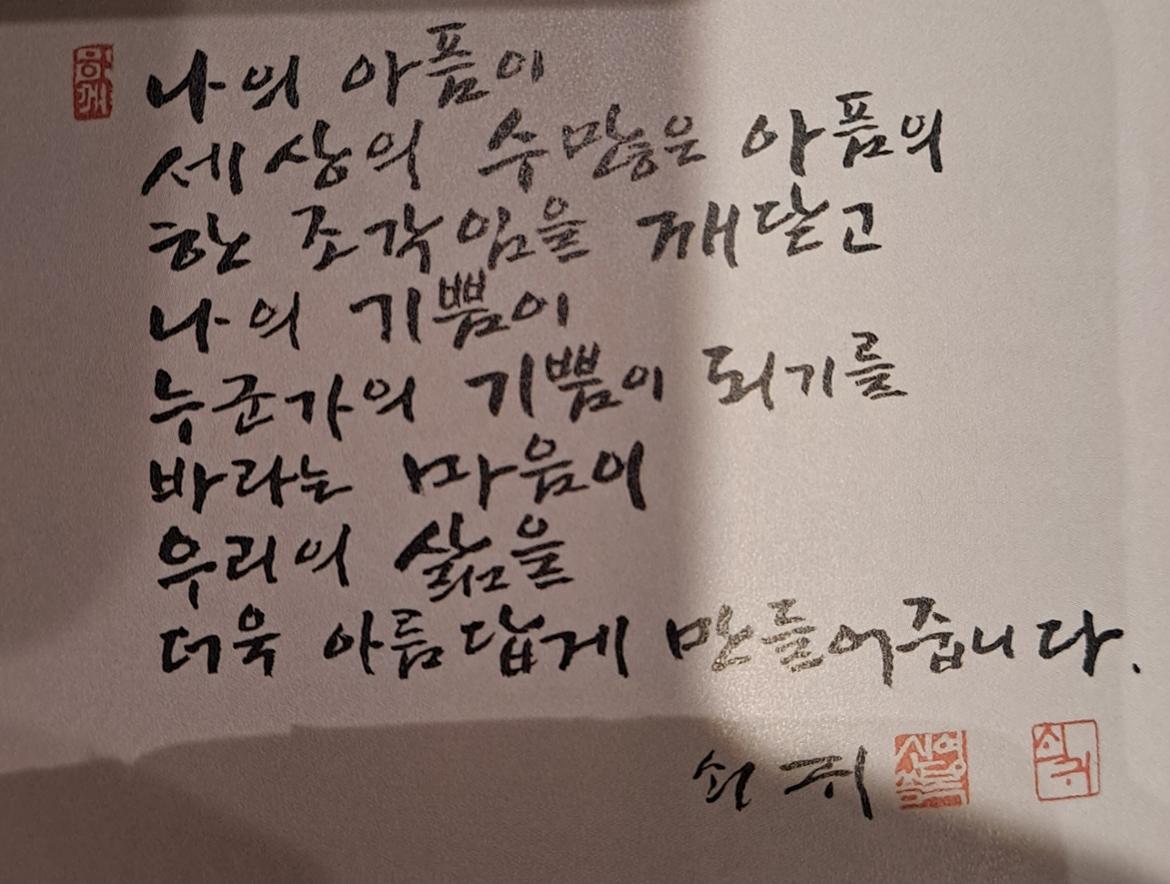 나의 아픔이
세상의 수많은 아픔의
한 조각임을 깨닫고
나의 기쁨이
누군가의 기쁨이 되기를
바라는 마음이
우리의 삶을
더욱 아름답게 만들어줍니다.
쇠귀